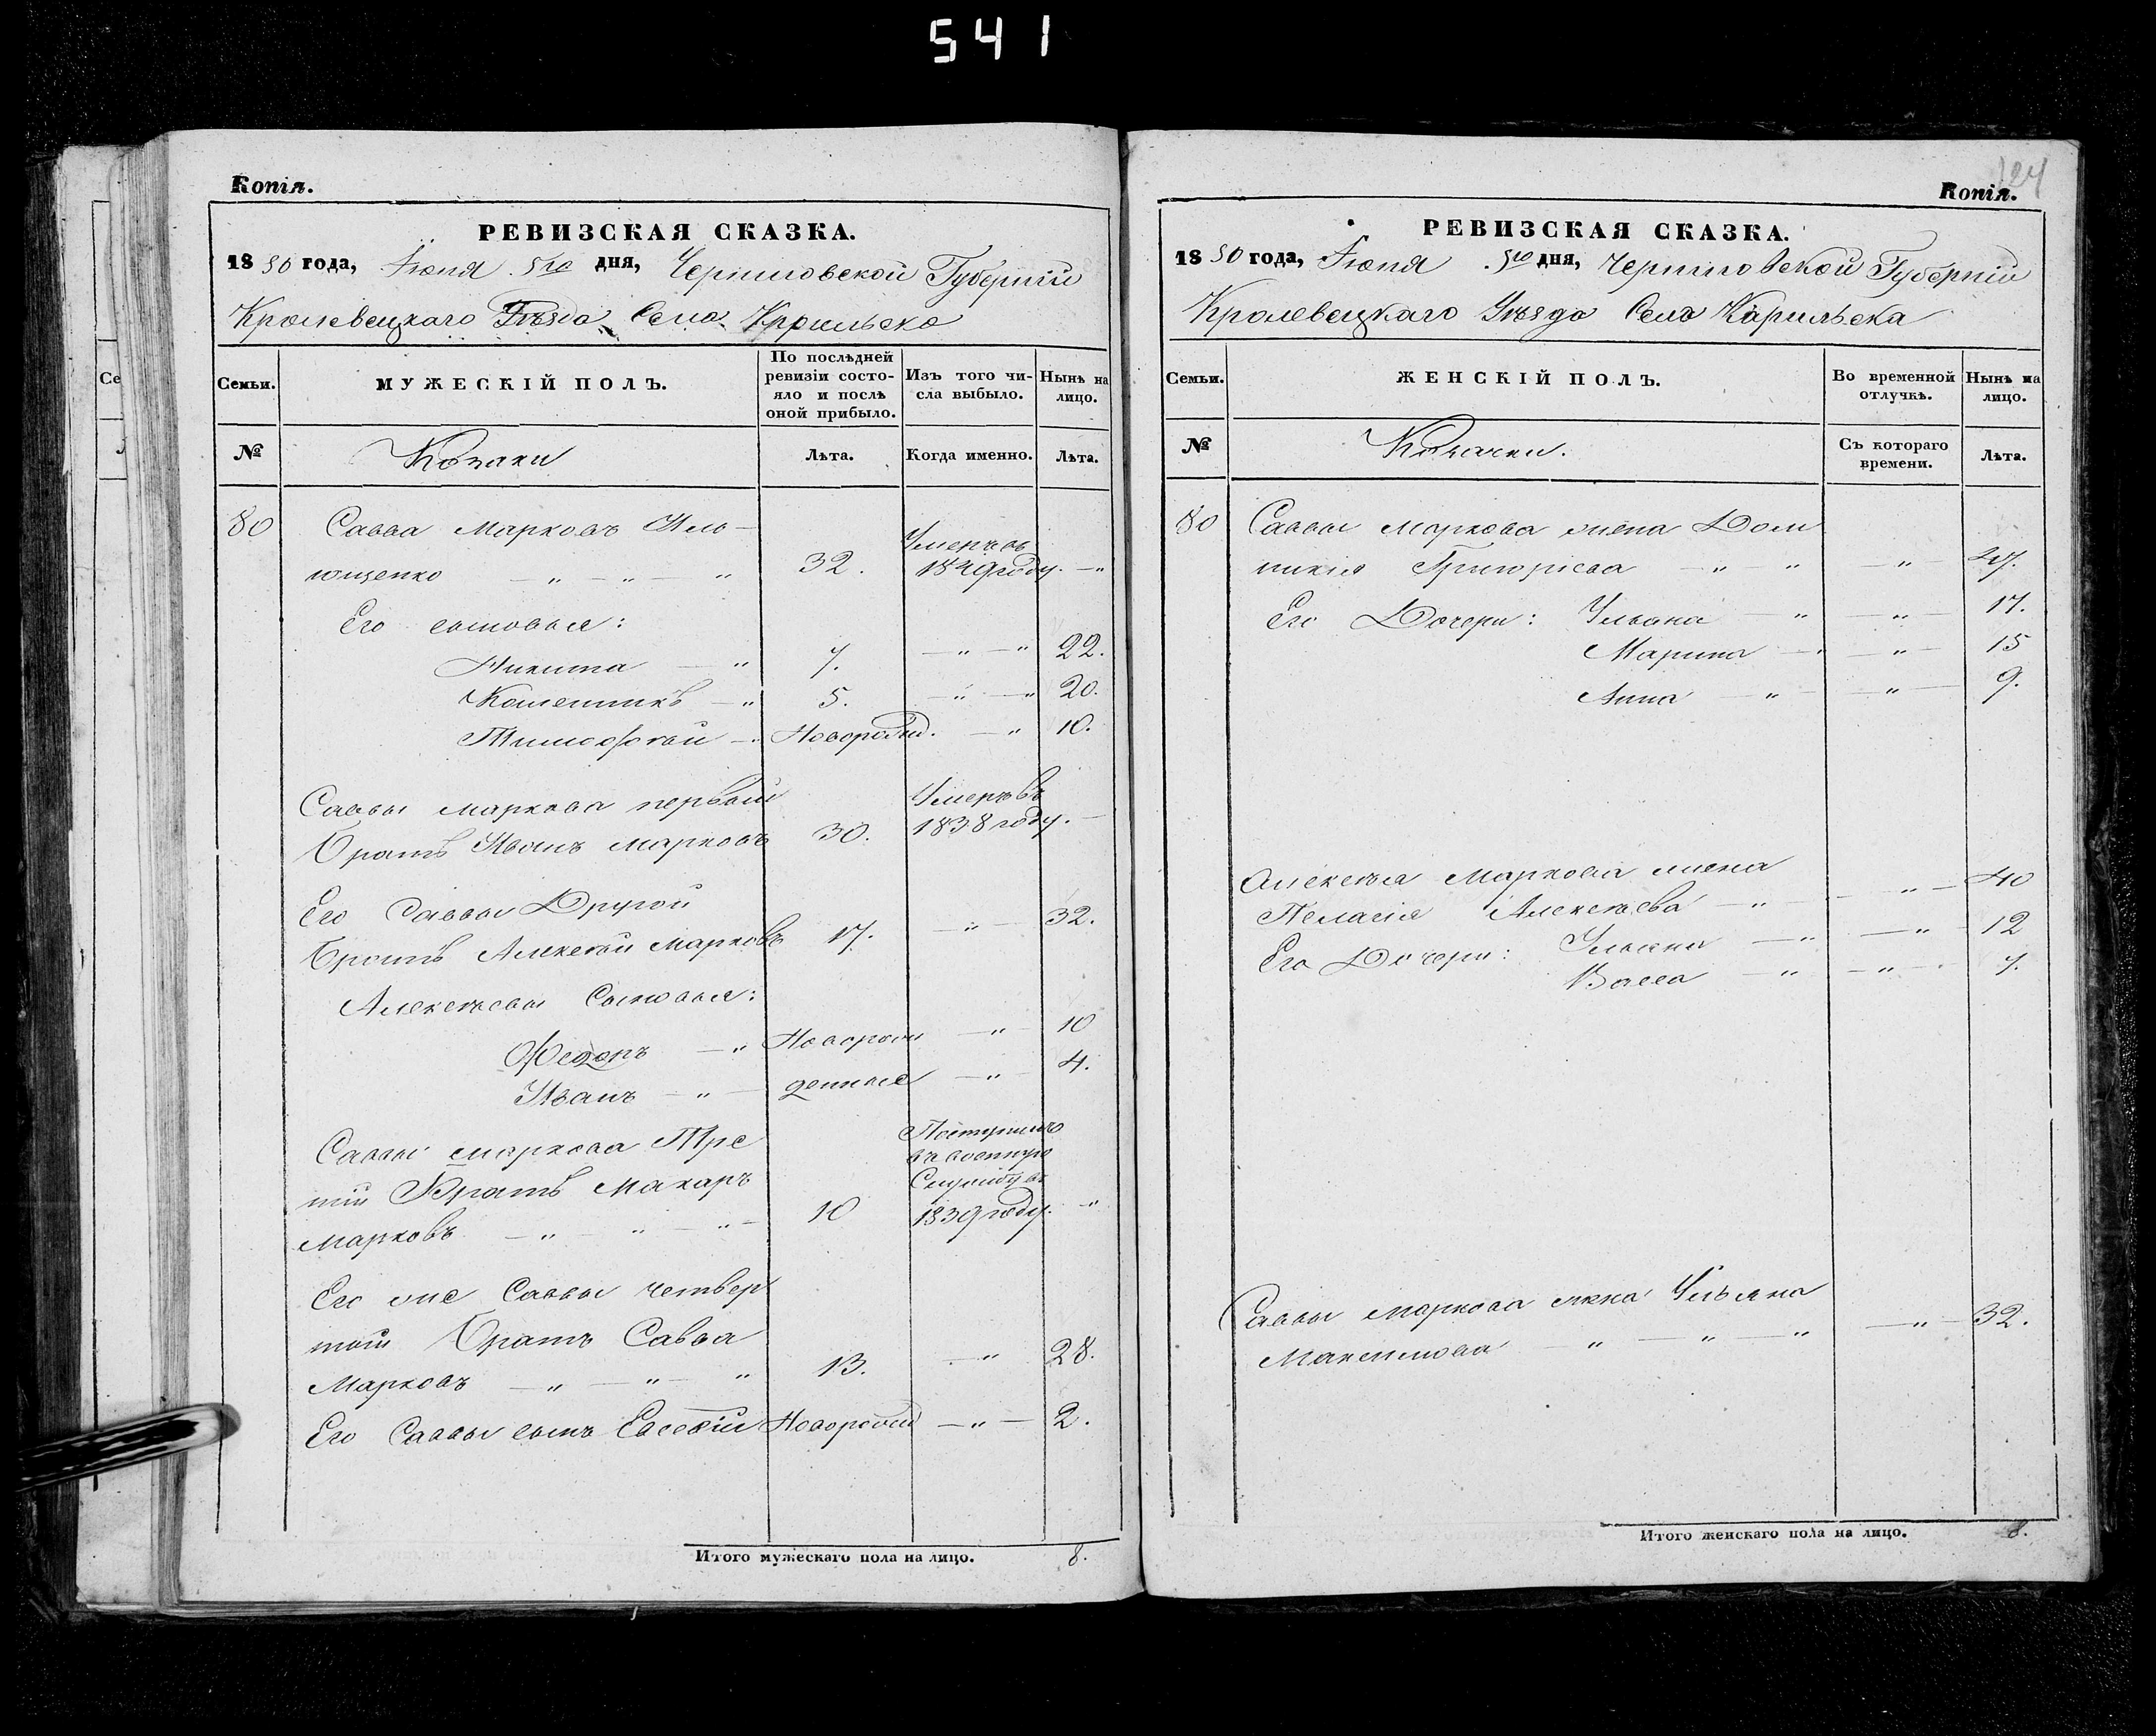 541
Се
Копія.
РЕВИЗСКАЯ СКАЗКА.
1850 года, Іюня 5го дня, Черниговской Губерніи
Кролевецкаго Уѣзда Села Карильска
Семьи.
МУЖЕСКІЙ ПОЛЪ.
По послѣдней ревизіи состояло и послѣ оной прибыло.
Изъ того числа выбыло.
Нынѣ на лицо.
№
Козаки
Лѣта.
Когда именно.
Лѣта.
80 Савва Марковъ Иль-
ющенко — " — " " 32. Умеръ въ 1849 году. — "
Его сыновья:
Никита — " 7. — " — " 22.
Климентій — " 5. — " — " 20.
Тимофѣй — " Новорожд. — " 10.
Саввы Маркова первый
Братъ Иванъ Марковъ 30. Умеръ въ 1838 году. —
Его Саввы Другой
Братъ Алексѣй Марковъ 17. — " — 32.
Алексѣевы Сыновья:
Федоръ — " Новорож — " — 10
Иванъ — " — денные — " — 4.
Саввы Маркова Тре
тій Братъ Макаръ
Марковъ — " — " — " — 10 Поступилъ въ военную Службу въ 1839 году. "
Его же Саввы четвер
тый Братъ Савва
Марковъ — " — " — " 13. — " 28.
Его Саввы сынъ Евсевій Новорожд — " — 2.
Итого мужескаго пола на лицо. 8.
124
Копія.
РЕВИЗСКАЯ СКАЗКА.
1850 года, Іюня 5го дня, Черниговской Губерніи
Кролевецкаго Уѣзда Села Карильска
Семьи.
ЖЕНСКІЙ ПОЛЪ.
Во временной отлучкѣ.
Нынѣ на лицо.
№
Козачки.
Съ котораго времени.
Лѣта.
80 Саввы Маркова жена Дом
никія Григорьева — " " — " 47.
Его Дочери: Ульяна — " — " — 17.
Марина — " — " — 15
Анна — " — — " — 9.
Алексѣя Маркова жена
Пелагія Алексѣева — " — — " — 40
Его Дочери: Ульяна — " — " — 12
Васса — " — " — 7.
Саввы Маркова жена Ульяна
Максимова — " — " — " — " — 32.
Итого женскаго пола на лицо. 8.